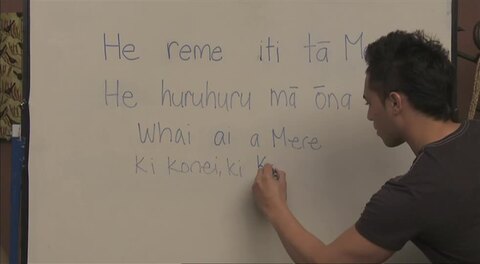 He reme iti tā
He huruhuru mā ōna
Whai ai a Mere
Ki Konei, ki